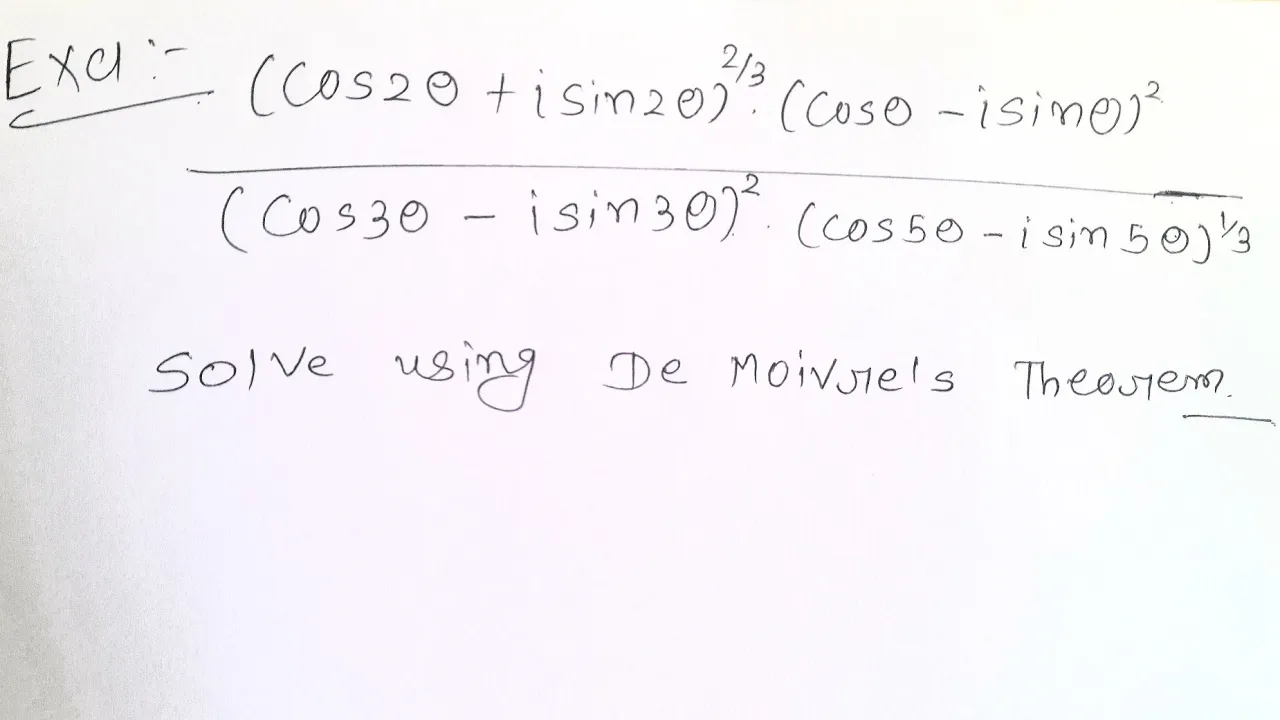 Ex1 :-
(cos2θ + i sin2θ)^2/3 . (cosθ - i sinθ)^2
(cos3θ - i sin3θ)^2 . (cos5θ - i sin5θ)^1/3
Solve using De Moivre's Theorem.